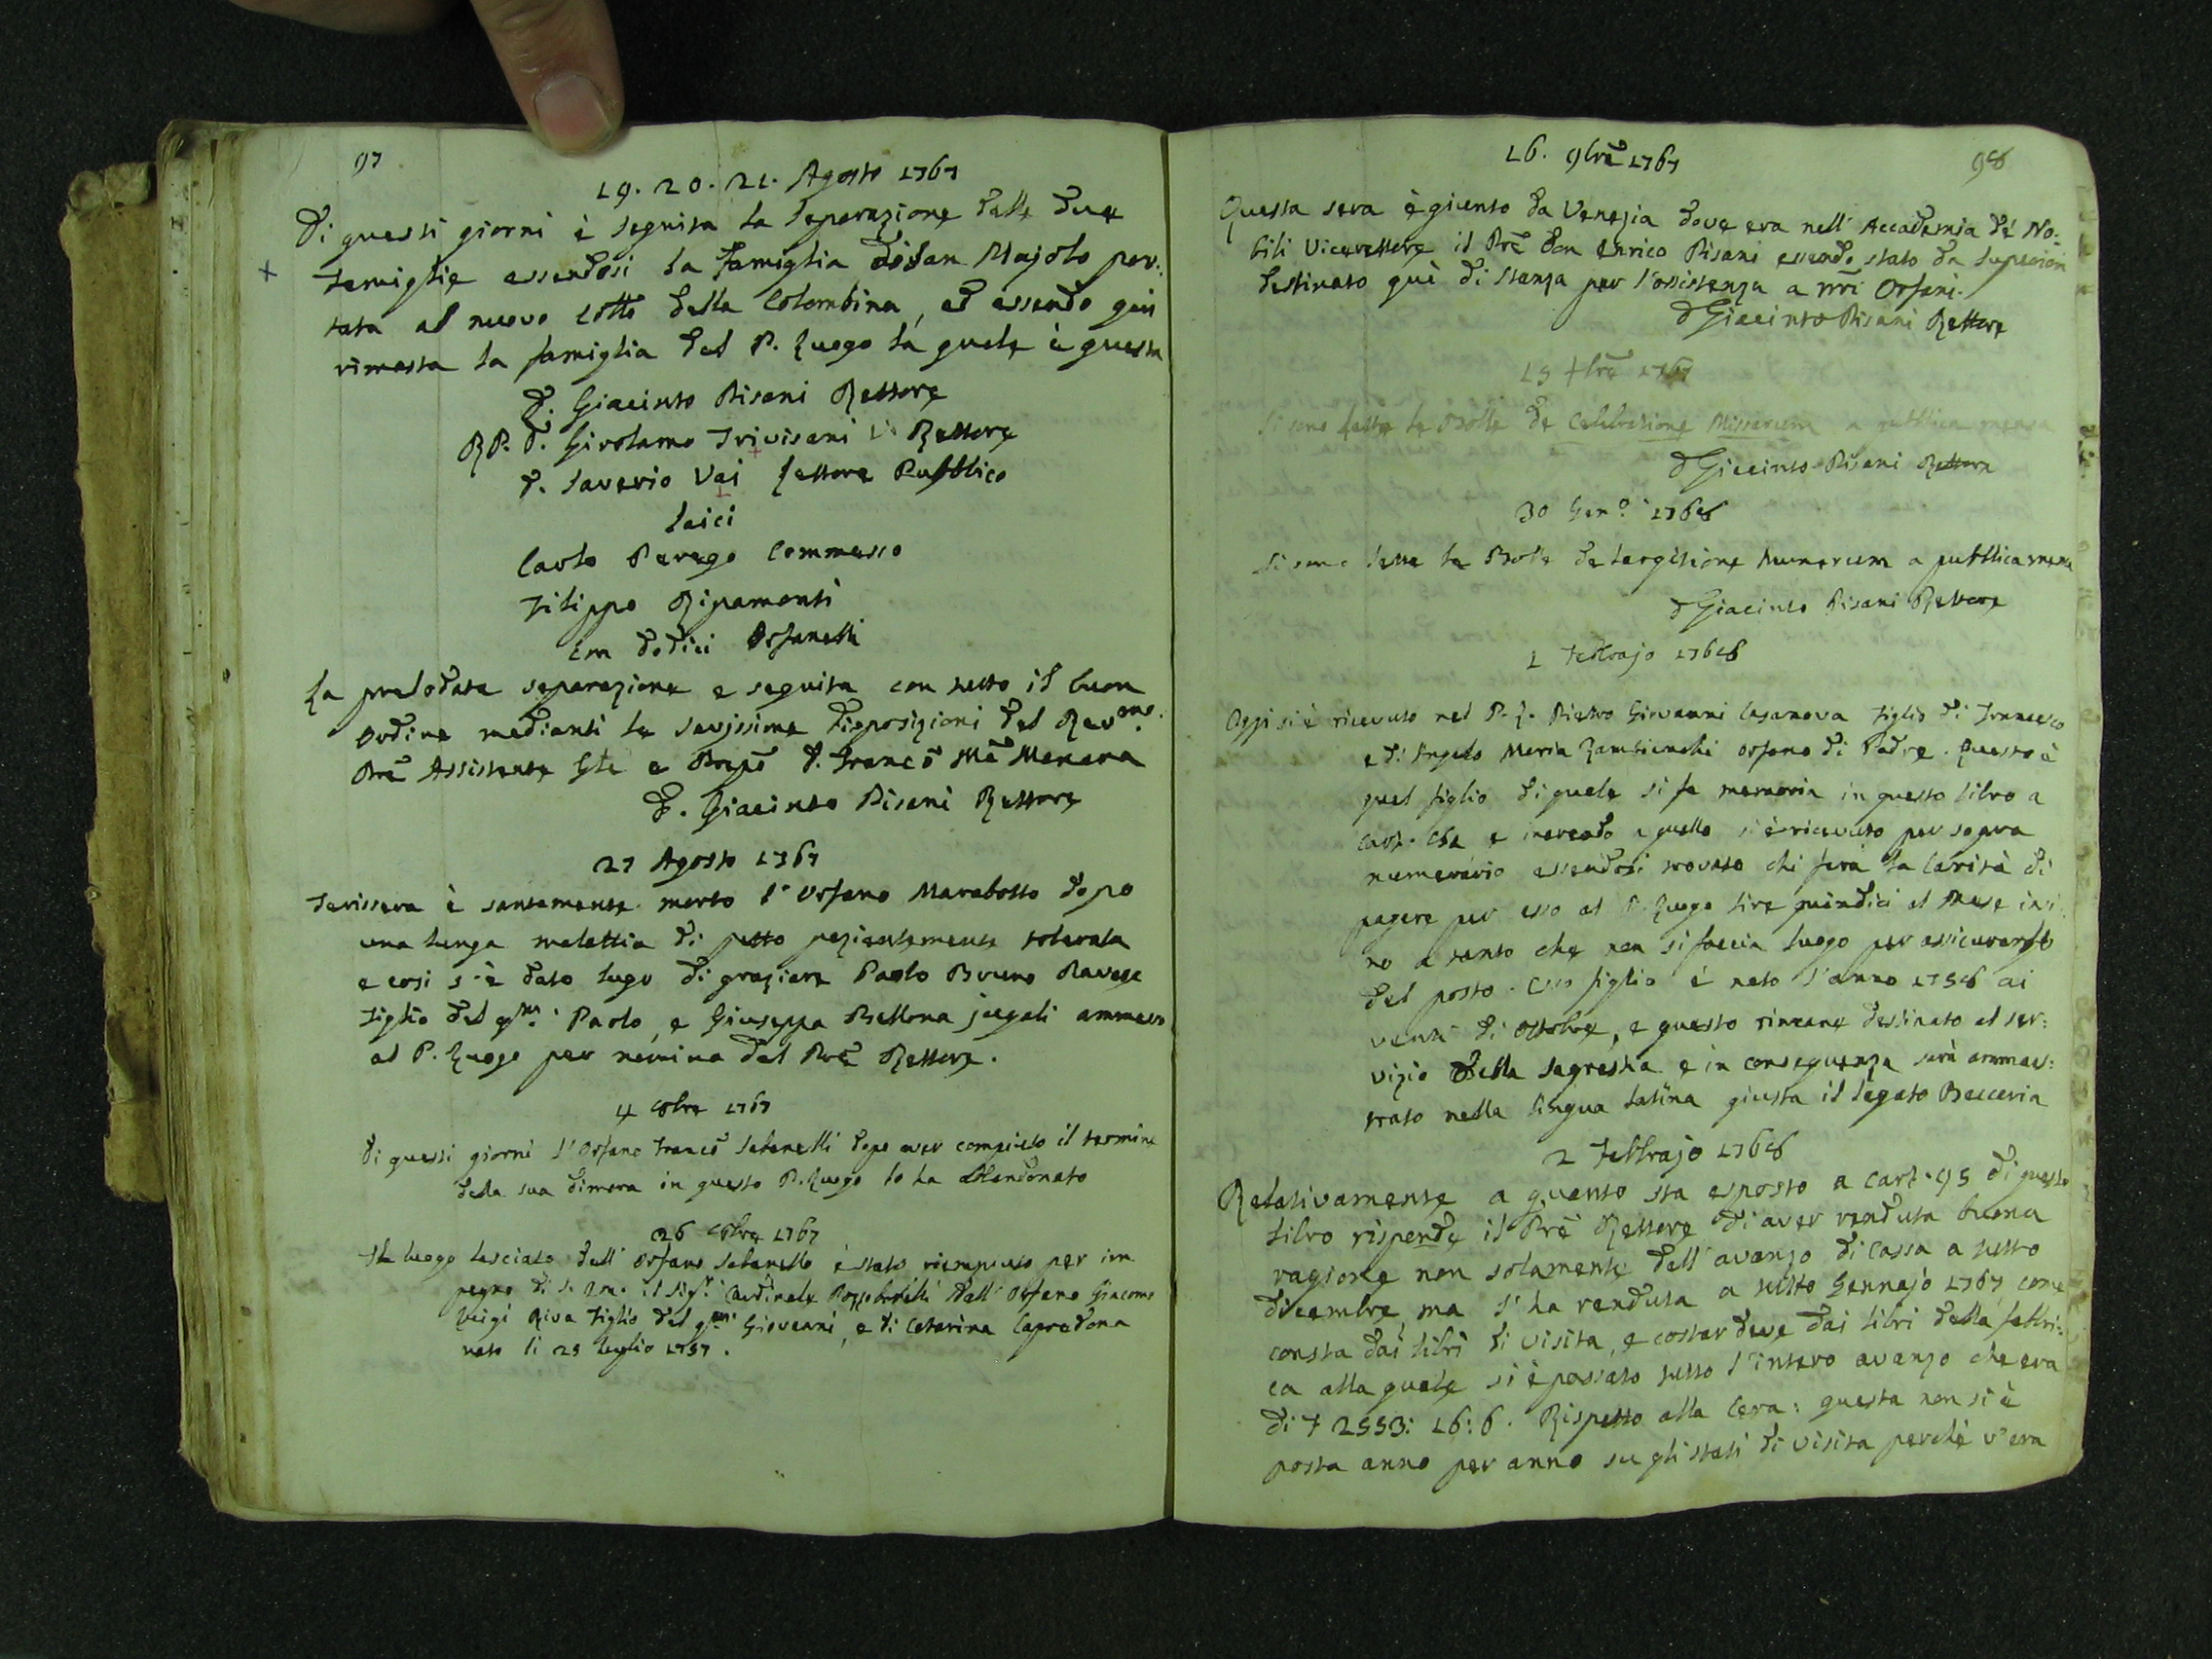 97
19. 20. 21. Agosto 1767
Di questi giorni è seguita la separazione delle due
famiglie essendosi la famiglia di San Majolo por:
tata al nuovo Colle della Colombina, ed essendo qui
rimasta la famiglia del P. Luogo la quale è questa
D. Giacinto Pisani Rettore
RR. P. D. Girolamo Trivisani V. Rettore
D. Saverio Vai Lettore Pubblico
Laici
Carlo Perego Commesso
Filippo Ripamonti
Con dodici Orfanelli
La prelodata separazione e seguita con tutto il buon
ordine medianti le savjssime disposizioni del Rev.mo
Prē Assistente Gle e Prepō D. Francō Mā Manara
D. Giacinto Pisani Rettore
27 Agosto 1767
Jerissera è santamente morto l'Orfano Marabotto dopo
una lunga malattia di petto pazientemente tolerata
e cosi s'è dato lugo di graziare Paolo Bruno Ravese
figlio del qm. Paolo, e Giuseppa Bellona jugali ammesso
al P. Luogo per nomina del Prē Rettore.
4 8bre 1767
Di questi giorni l'Orfano Francō Sabanelli dopo aver compiuto il termine
della sua dimora in questo P. Luogo lo ha abbandonato
26 8bre 1767
Il luogo lasciato dall'Orfano Sabanello è stato riempiuto per im
pegno di S. Em. il Sig.r Cardinale Pozzobonelli dall'Orfano Giacomo
Luigi Riva figlio del qm. Giovanni, e di Catarina Capredona
nato li 25 luglio 1757.
98
16. 9brē 1767
Questa sera è giunto da Venezia dove era nell'Accademia dè No:
bili Vicerettore il Prē don Enrico Pisani essendo stato da superiori
destinato quì di stanza per l'assistenza a nrī Orfani.
D Giacinto Pisani Rettore
15 Xbrē 1767
Si sono lette le Bolle de Celebratione Missarum a pubblica mensa
D Giacinto Pisani Rettore
30 Gen.o 1768
Si sono lette le Bolle de largitione Munerum a pubblica mensa
D Giacinto Pisani Rettore
1 Febbrajo 1768
Oggi si è ricevuto nel P. L. Pietro Giovanni Casanova figlio di Francesco
e di Angela Maria Zambianchi orfano di Padre. Questo è
quel figlio di quale si fa memoria in questo libro a
cart. e inerendo a quello si è ricevuto per sopra
numerario essendosi trovato chi farà la carità di
pagare per esso al P. Luogo lire quindici al mese insi:
no a tanto che non si faccia luogo per assicurarlo
del posto. Esso figlio è nato l'anno 1756 ai
venti di ottobre, e questo rimane destinato al ser:
vizio della sagrestia e in conseguenza sarà ammae:
strato nella lingua latina giusta il legato Becceria
2 Febbrajo 1768
Relativamente a quanto sta esposto a cart. 95 di questo
libro risponde il Prē Rettore di aver renduta buona
ragione non solamente dell'avanzo di cassa a tutto
dicembre, ma l'ha renduta a tutto Gennajo 1767 come
consta dai libri di visita, e costar deve dai libri della fabbri:
ca alla quale si è passato tutto l'intero avanzo che era
di £ 2553: 16: 6. Rispetto alla Cera: questa non si è
posta anno per anno su gli stati di visita perchè v'era